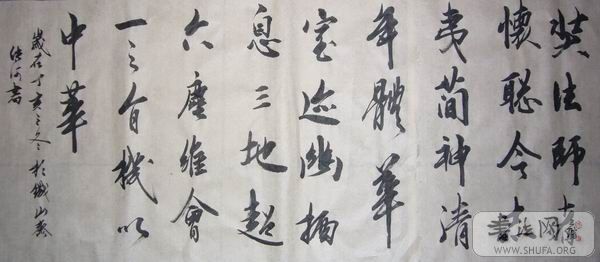 奘法師
懷聰令
夷簡神清
年體華
室迹幽栖
息三地超
六塵維會
一之旨機以
中華
歲在丁亥之冬於鐵山
書
书法网
WWW.SHUFA.ORG